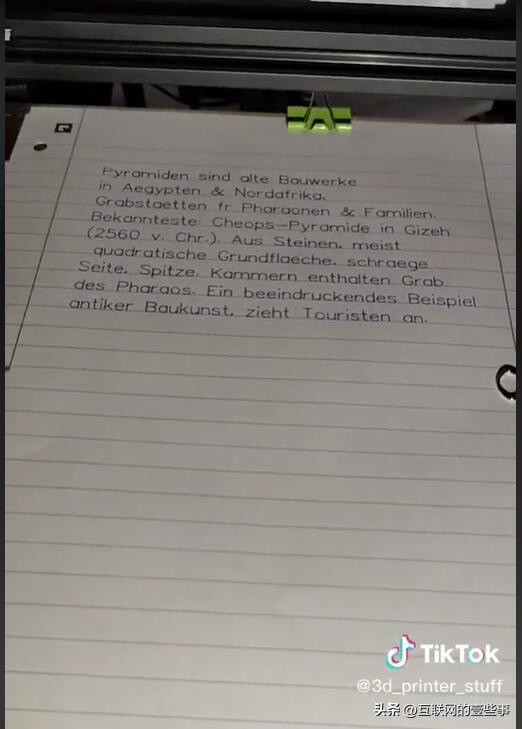 Pyramiden sind alte Bauwerke
in Aegypten & Nordafrika.
Grabstaetten fr Pharaonen & Familien.
Bekannteste: Cheops-Pyramide in Gizeh
(2560 v. Chr.). Aus Steinen, meist
quadratische Grundflaeche, schraege
Seite, Spitze. Kammern enthalten Grab
des Pharaos. Ein beeindruckendes Beispiel
antiker Baukunst, zieht Touristen an.
TikTok
@3d_printer_stuff
头条 @互联网的壹些事